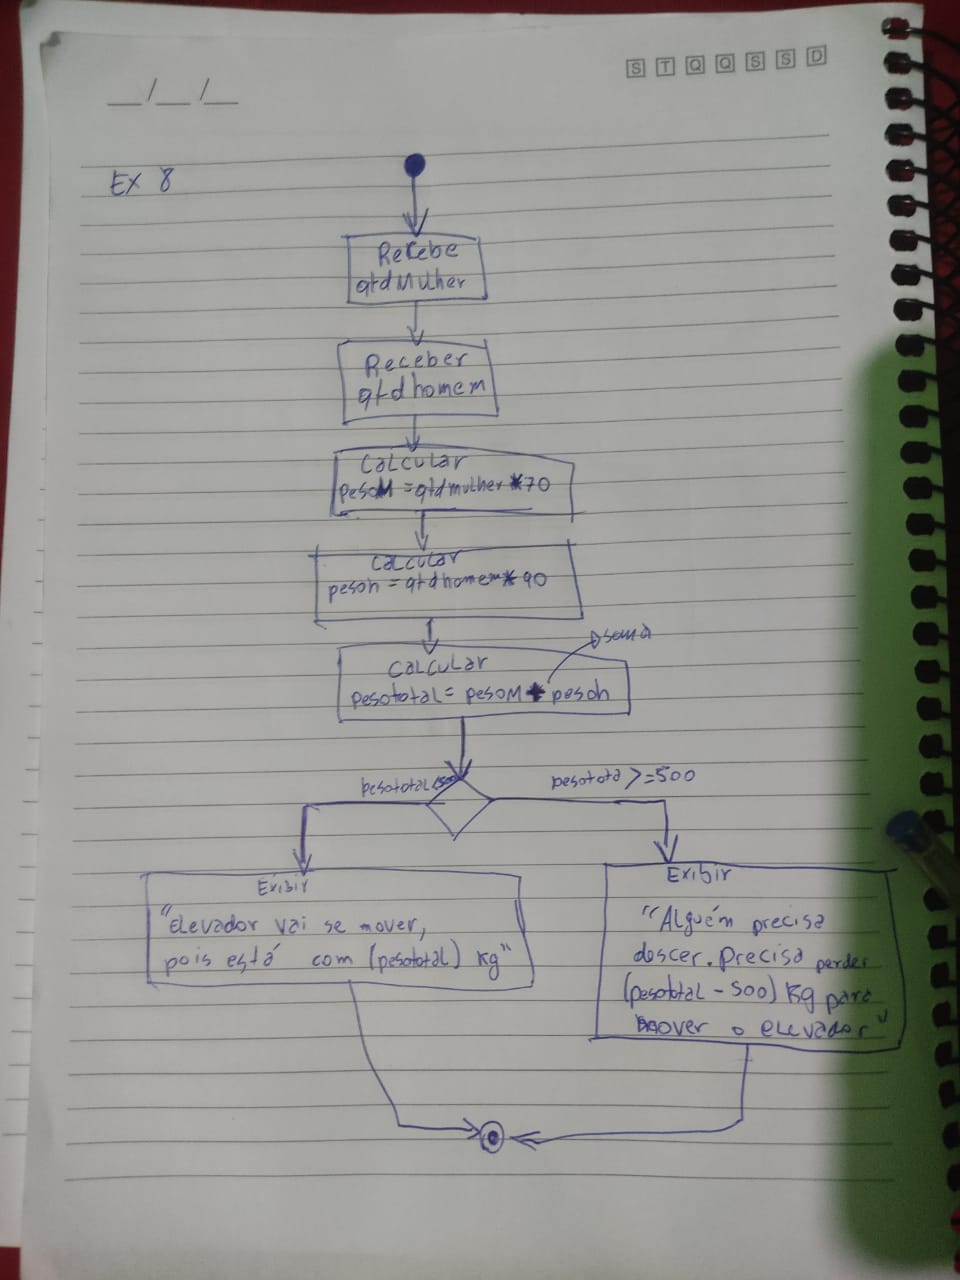 S T Q Q S S D
__/__/__
EX 8
Recebe
qtdMulher
Receber
qtdhomem
Calcular
pesoM = qtdmulher *70
Calcular
pesoh = qtdhomem* 90
soma
Calcular
pesototal = pesoM + pesoh
pesototal<500
pesotota >=500
Exibir
"Elevador vai se mover,
pois está com (pesototal) Kg"
Exibir
"Alguém precisa
descer. Precisa perder
(pesototal - 500) Kg para
mover o elevador"